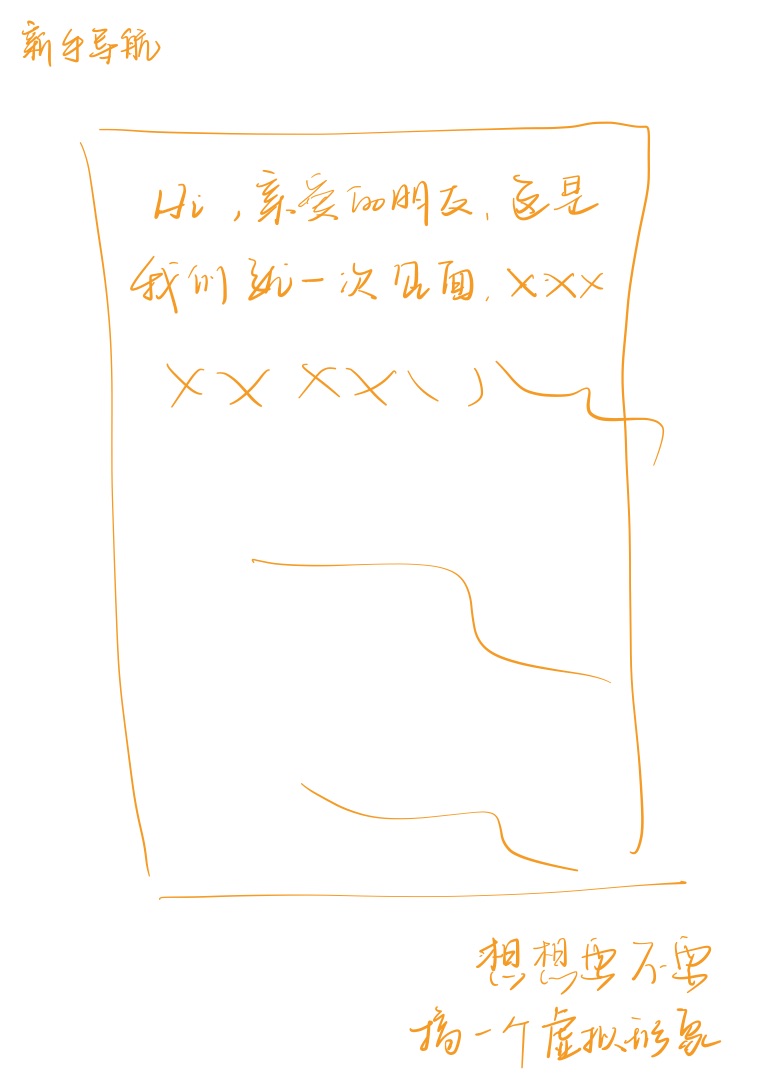 新手导航
Hi，亲爱的朋友，这是
我们第一次见面，XXX
XXXX
想想要不要
搞一个虚拟形象